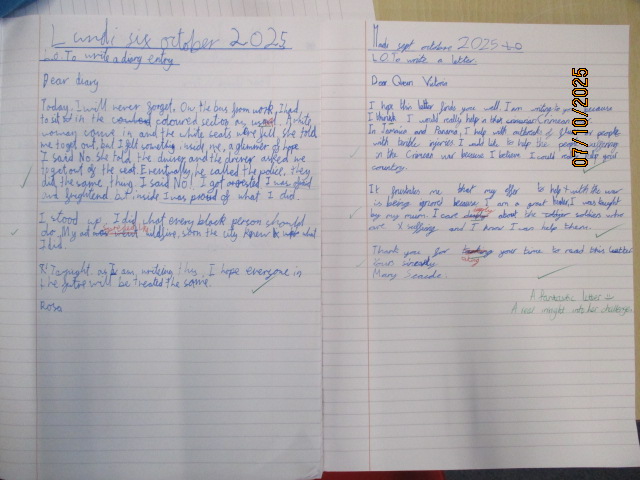 Lundi six october 2025
L.O. To write a diary entry
Dear diary
Today, I will never forget. On the bus from work, I had
to sit in the coloured section as usual. A white
woman came in and the white seats were full she told
me to get out, but I felt something inside me, a glimmer of hope
I said No. she told the driver and the driver asked me
to get out of the seat. Eventually, he called the police, they
did the same thing. I said NO! I got arrested. I was
and frightend but inside I was proud of what I did.
I stood up. I did what every black person should
do. My soon the city knew what
I did.
Tonight, as I am writeing this, I hope everyone in
the future will be treated the same.
Rosa
Mardi sept octobre 2025
L.O. To write a letter.
Dear Queen Victoria
I hope this letter finds you well. I am writing to you because
I I would really help in the Crimean
In Jamaica and Panama, I help with outbreak of people
with terrible injuries I would like to help the people suffering
in the Crimean war because I believe I would help your
country.
It frustrates me that my offer to help with the war
is being ignored because I am a great healer, I was taught
by my mum. I care deeply about the soldiers who
are suffering and I know I can help them.
Thank you for taking your time to read this letter
Yours sincerely
Mary Seacole.
A fantastic letter -
A real insight into her challenges
07/10/2025